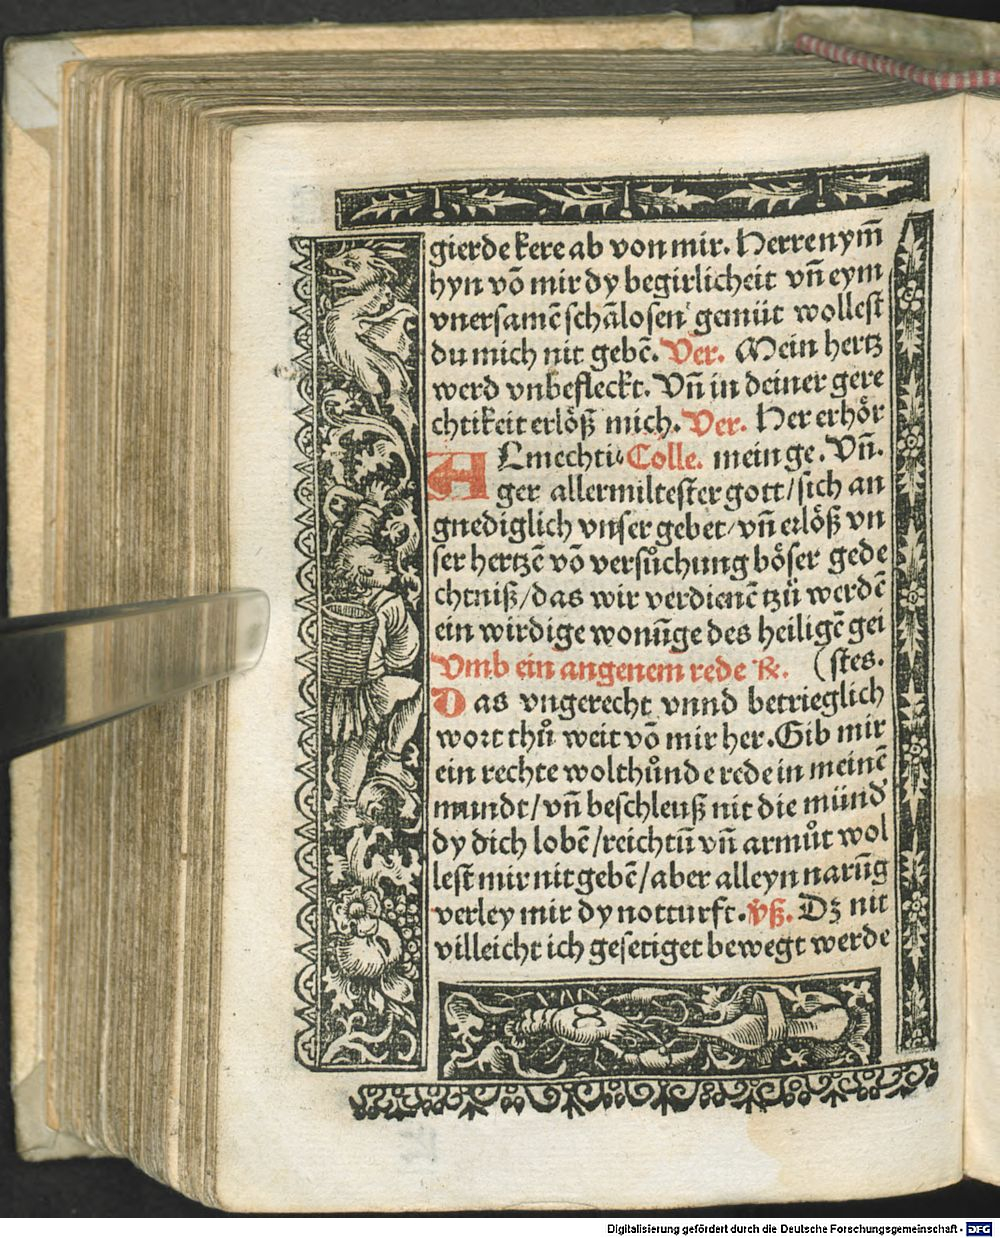 gierde kere ab von mir. Herre nym̄
hyn võ mir dy begirlicheit vn̄ eym
vnersamē schālosen gemüt wollest
du mich nit gebē. Ver. Mein hertz
werd vnbefleckt. Vn̄ in deiner gere
chtikeit erlöß mich. Ver. Her erhör
ALmechti⸗ Colle. mein ge. Vn̄.
ger allermiltester gott/sich an
gnediglich vnser gebet/vn̄ erlöß vn
ser hertzē võ versůchung böser gede
chtniß/das wir verdienē tzü werdē
ein wirdige wonūge des heiligē gei
Vmb ein angenem rede ꝛc. (stes.
Das vngerecht vnnd betrieglich
wort thů weit võ mir her. Gib mir
ein rechte wolthůnde rede in meinē
mundt/vn̄ beschleuß nit die münd
dy dich lobē/reichtū vn̄ armůt wol
lest mir nit gebē/aber alleyn narūg
verley mir dy notturft. Vß. Dz nit
villeicht ich gesetiget bewegt werde
Digitalisierung gefördert durch die Deutsche Forschungsgemeinschaft - DFG